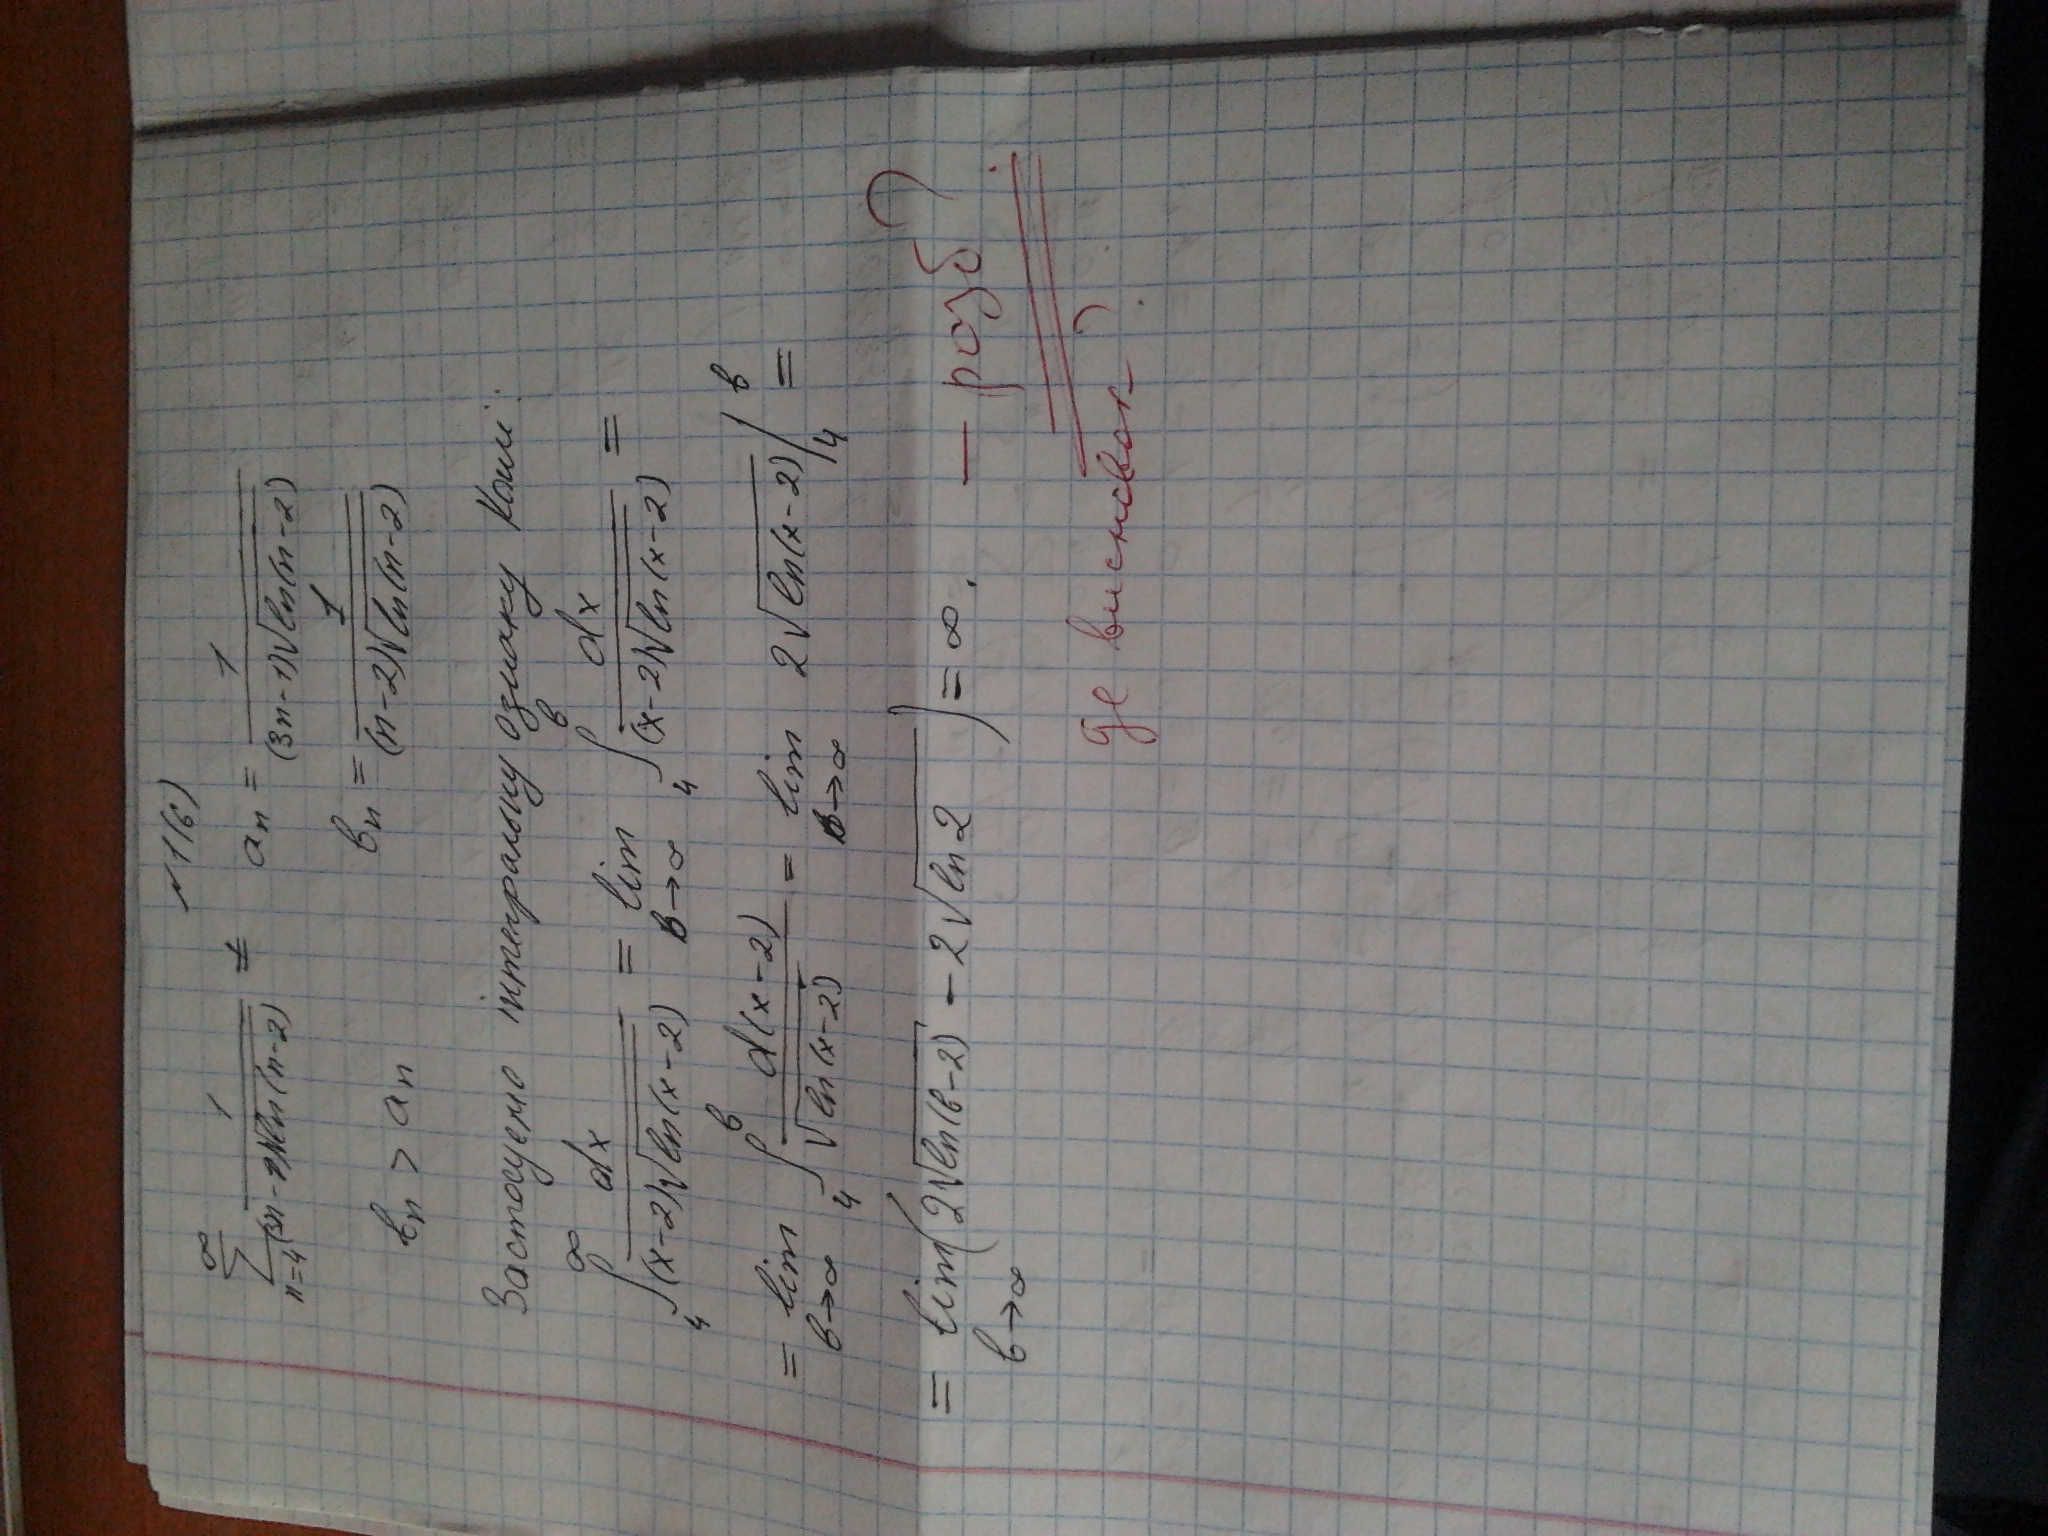 №1(б)
∞ ∑ n=4 1/((3n-1)√ln(n-2)) ≠ aₙ = 1/((3n-1)√ln(n-2))
bₙ = 1/((n-2)√ln(n-2))
bₙ > aₙ
Застосуємо інтегральну ознаку Коші:
∫₄^∞ dx/((x-2)√ln(x-2)) = lim b→∞ ∫₄^b dx/((x-2)√ln(x-2)) =
= lim b→∞ ∫₄^b d(x-2)/√ln(x-2) = lim b→∞ 2√ln(x-2) |₄^b =
= lim b→∞ (2√ln(b-2) - 2√ln2) = ∞. — розб?
де висновок?